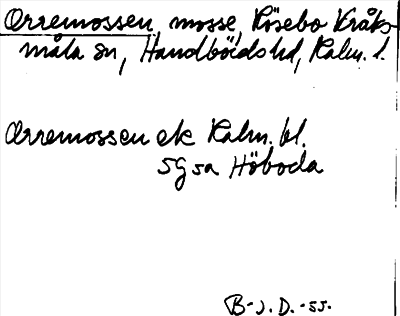 Orremossen, mosse, Rösebo Kråks-
måla sn, Handbörds hd, Kalm. l.
Orremossen ek Kalm. bl.
5G 5a Höboda
B-J. D. -55.